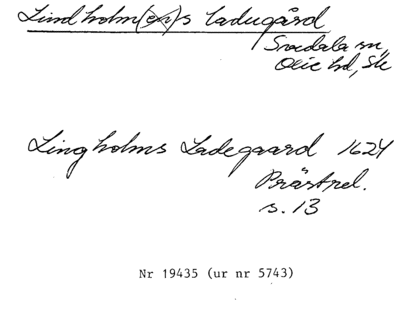 Lindholm(en)s Ladugård
Svedala sn,
Oxie hd, Sk
Lingholms Ladegaard 1624
Prästrel.
s. 13
Nr 19435 (ur nr 5743)